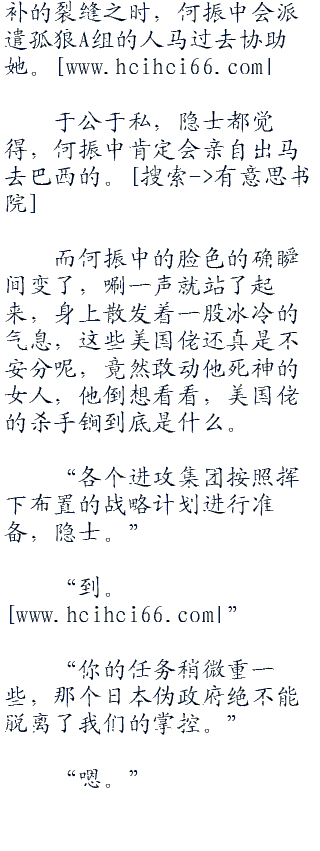 补的裂缝之时，何振中会派
遣孤狼A组的人马过去协助
她。[www.hcihci66.com|
于公于私，隐士都觉
得，何振中肯定会亲自出马
去巴西的。[搜索->有意思书
院]
而何振中的脸色的确瞬
间变了，唰一声就站了起
来，身上散发着一股冰冷的
气息，这些美国佬还真是不
安分呢，竟然敢动他死神的
女人，他倒想看看，美国佬
的杀手锏到底是什么。
“各个进攻集团按照挥
下布置的战略计划进行准
备，隐士。”
“到。
[www.hcihci66.com|”
“你的任务稍微重一
些，那个日本伪政府绝不能
脱离了我们的掌控。”
“嗯。”